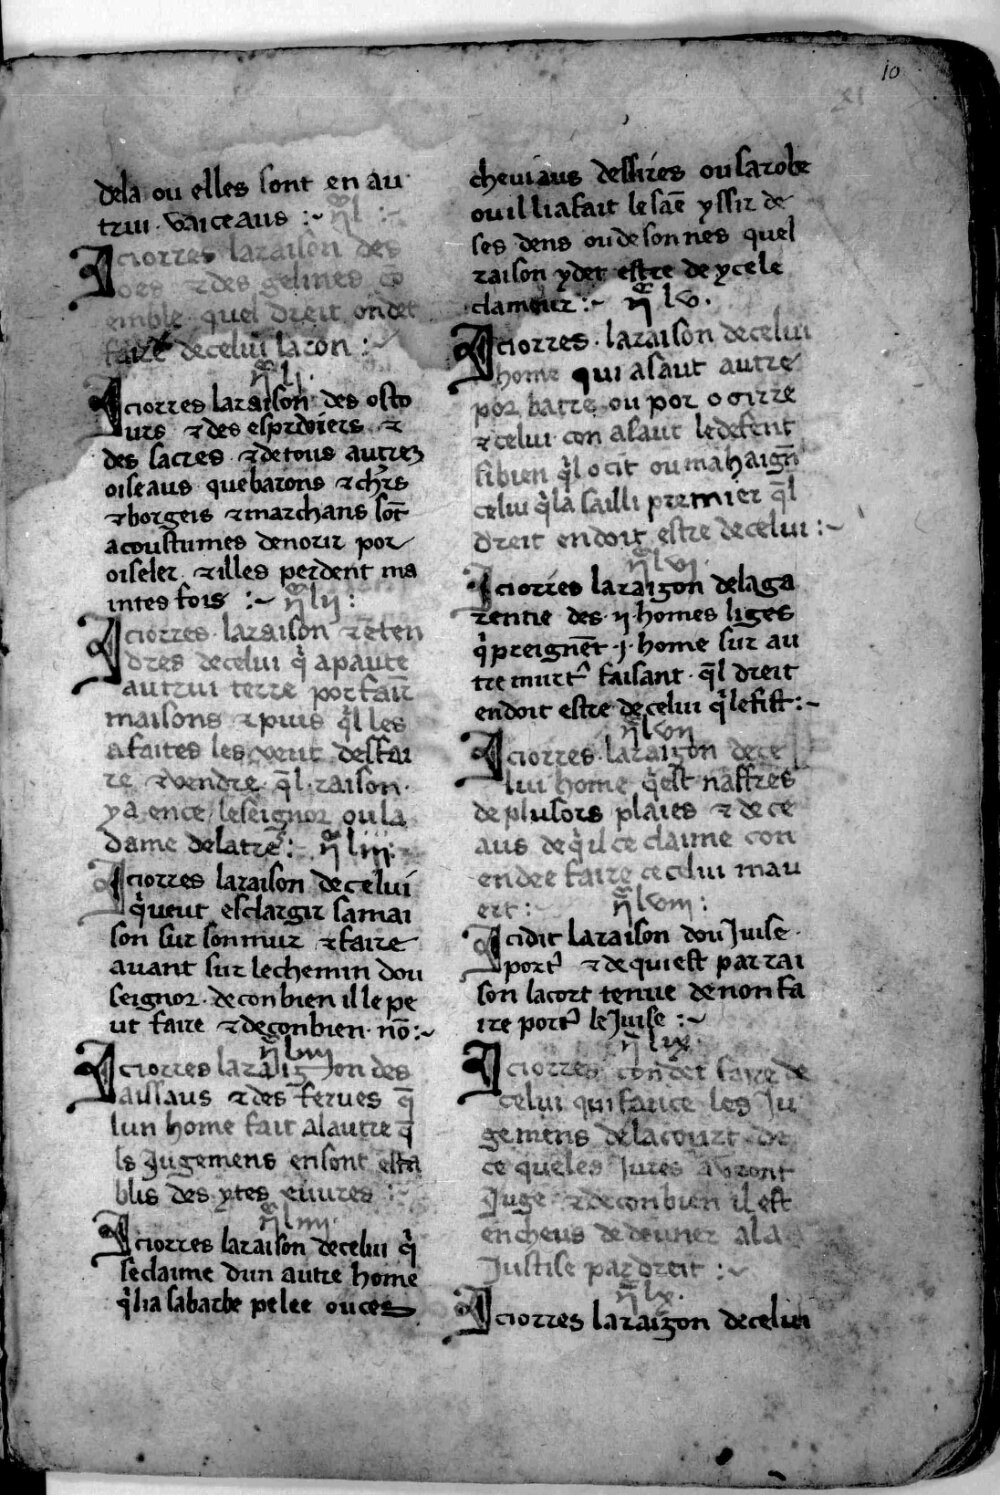 10
XI
dela ou elles sont en au
trui vaiceaus :~ q̃ l :
Iciorres laraison des
oes ⁊ des gelines co
emble quel dreit ondet
faire decelui laron :~
q̃ lj.
Iciorres laraison des osto
urs ⁊ des esprviers ⁊
des sacres ⁊ detous autrez
oiseaus quebarons ⁊ chrs
⁊ borgeis ⁊ marchans sõt
acoustumes denorir por
oiseler ⁊ illes perdent ma
intes fois :~ q̃ lij :
Iciorres laraison ⁊ẽten
dres decelui q̾ apaute
autrui terre por fair̃
maisons ⁊ puis q̾l les
afaites les veut desfai
re ⁊ vendre q̃l raison
ya ence leseignor ou la
dame delatre : q̃ liij.
Iciorres laraison decelui
q̾ueut esclargir samai
son sur sonmur ⁊ faire
avant sur lechemin dou
seignor decon bien il le pe
ut faire ⁊ deconbien nõ :~
q̃ liiij
Iciorres laraigon des
aissaus ⁊ des ferues q̃
lun home fait alautre q̃
ls jugemens ensont esta
blis des ytes euures :~
q̃ liiij.
Iciorres laraison decelui q̾
seclaime dun autre home
q̾lia sabarbe pelee ouces
cheuiaus dessires ou sarobe
ou il liafait le sãc yssir de
ses dens ou de son nes quel
raison ydet estre de ycele
clamour :~ q̃ lv.
Iciorres laraison decelui
home qui asaut autre
por batre ou por ocirre
⁊ celui con asaut ledefent
sibien q̾l ocit ou mahaign̄
celui q̾la sailli premier q̃l
dreit endoit estre decelui :~
q̃ lvj.
Iciorres laraigon delaga
rentie des ij homes liges
q̾preignẽt j home sur au
tre murt̾ faisant q̃l dreit
endoit estre decelui q̾lefist :~
q̃ lvij
Iciorres laraigon dece
lui home q̾est naffres
de plusors plaies ⁊ de ce
aus deq̾ il ce claime con
en dee faire ce celui mau
ert : q̃ lviij :
Icidit laraison dou juise
port̾ ⁊ de qui est par rai
son lacort tenue denonfa
ire port̾ le juise :~
q̃ lix.
Iciorres conдet faire de
celui qui fauce les ju
gemens delacourt de
ce queles jures auront
juge ⁊ deconbien il est
encheus de douner ala
justise par dreit :~
q̃ lx.
Iciorres laraigon decelui